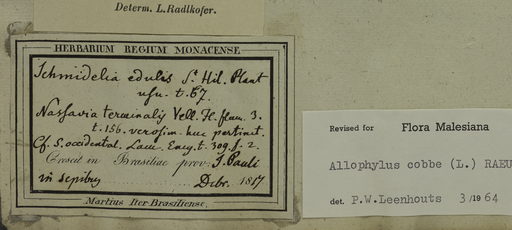 Determ. L. Radlkofer.
HERBARIUM REGIUM MONACENSE
Schmidelia edulis St Hil. Plant
usu. t. 67.
Nassavia terminalis Vell. Fl. flum. 3.
t. 156. verosim. huc pertinet.
Cf. S. occidental. Lam. Ency. t. 309. f. 2.
Crescit in Brasiliae prov. S. Pauli
in sepibus Debr. 1817
Martius Iter Brasiliense.
Revised for Flora Malesiana
Allophylus cobbe (L.) RAEU
det. P.W.Leenhouts 3/1964